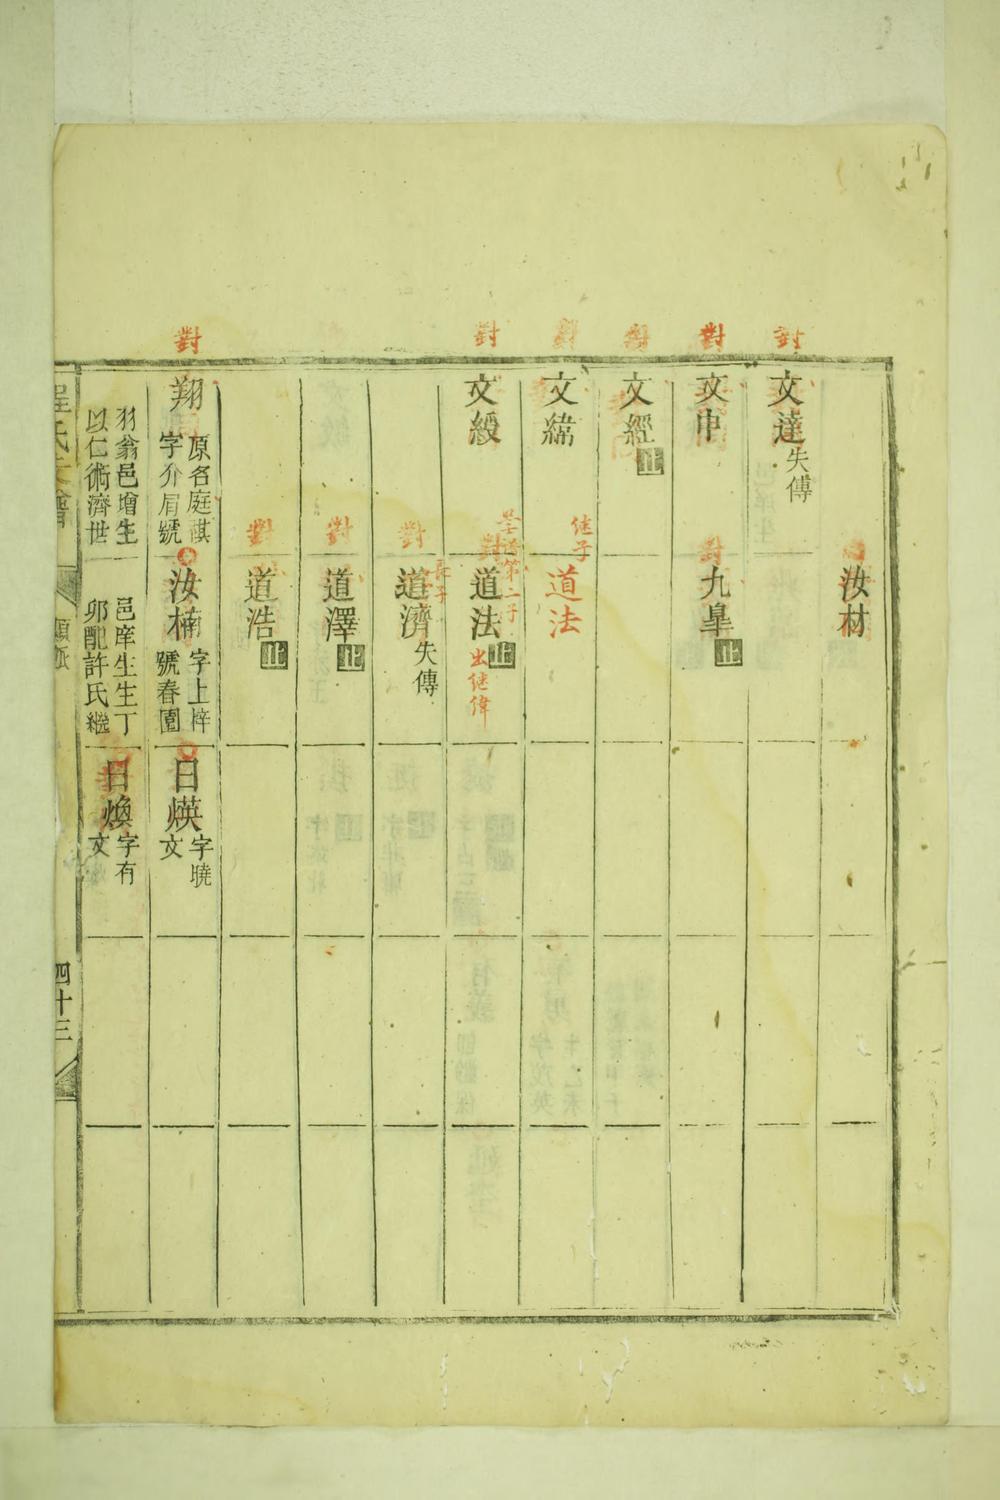 汝材
對
文達失傳
對
文申
對
九臯止
對
文經止
對
文緯
继子
道法
對
文綬
對
第二子
道法止
出继偉
對
長子
道濟失傳
對
道澤止
對
道浩止
對
翔
原名庭祺
字介眉號
汝楠
字上梓
號春園
日煐
字曉
文
羽翁邑增生
以仁術濟世
邑庠生生丁
卯配許氏繼
日煥
字有
文
程氏支譜
四十三